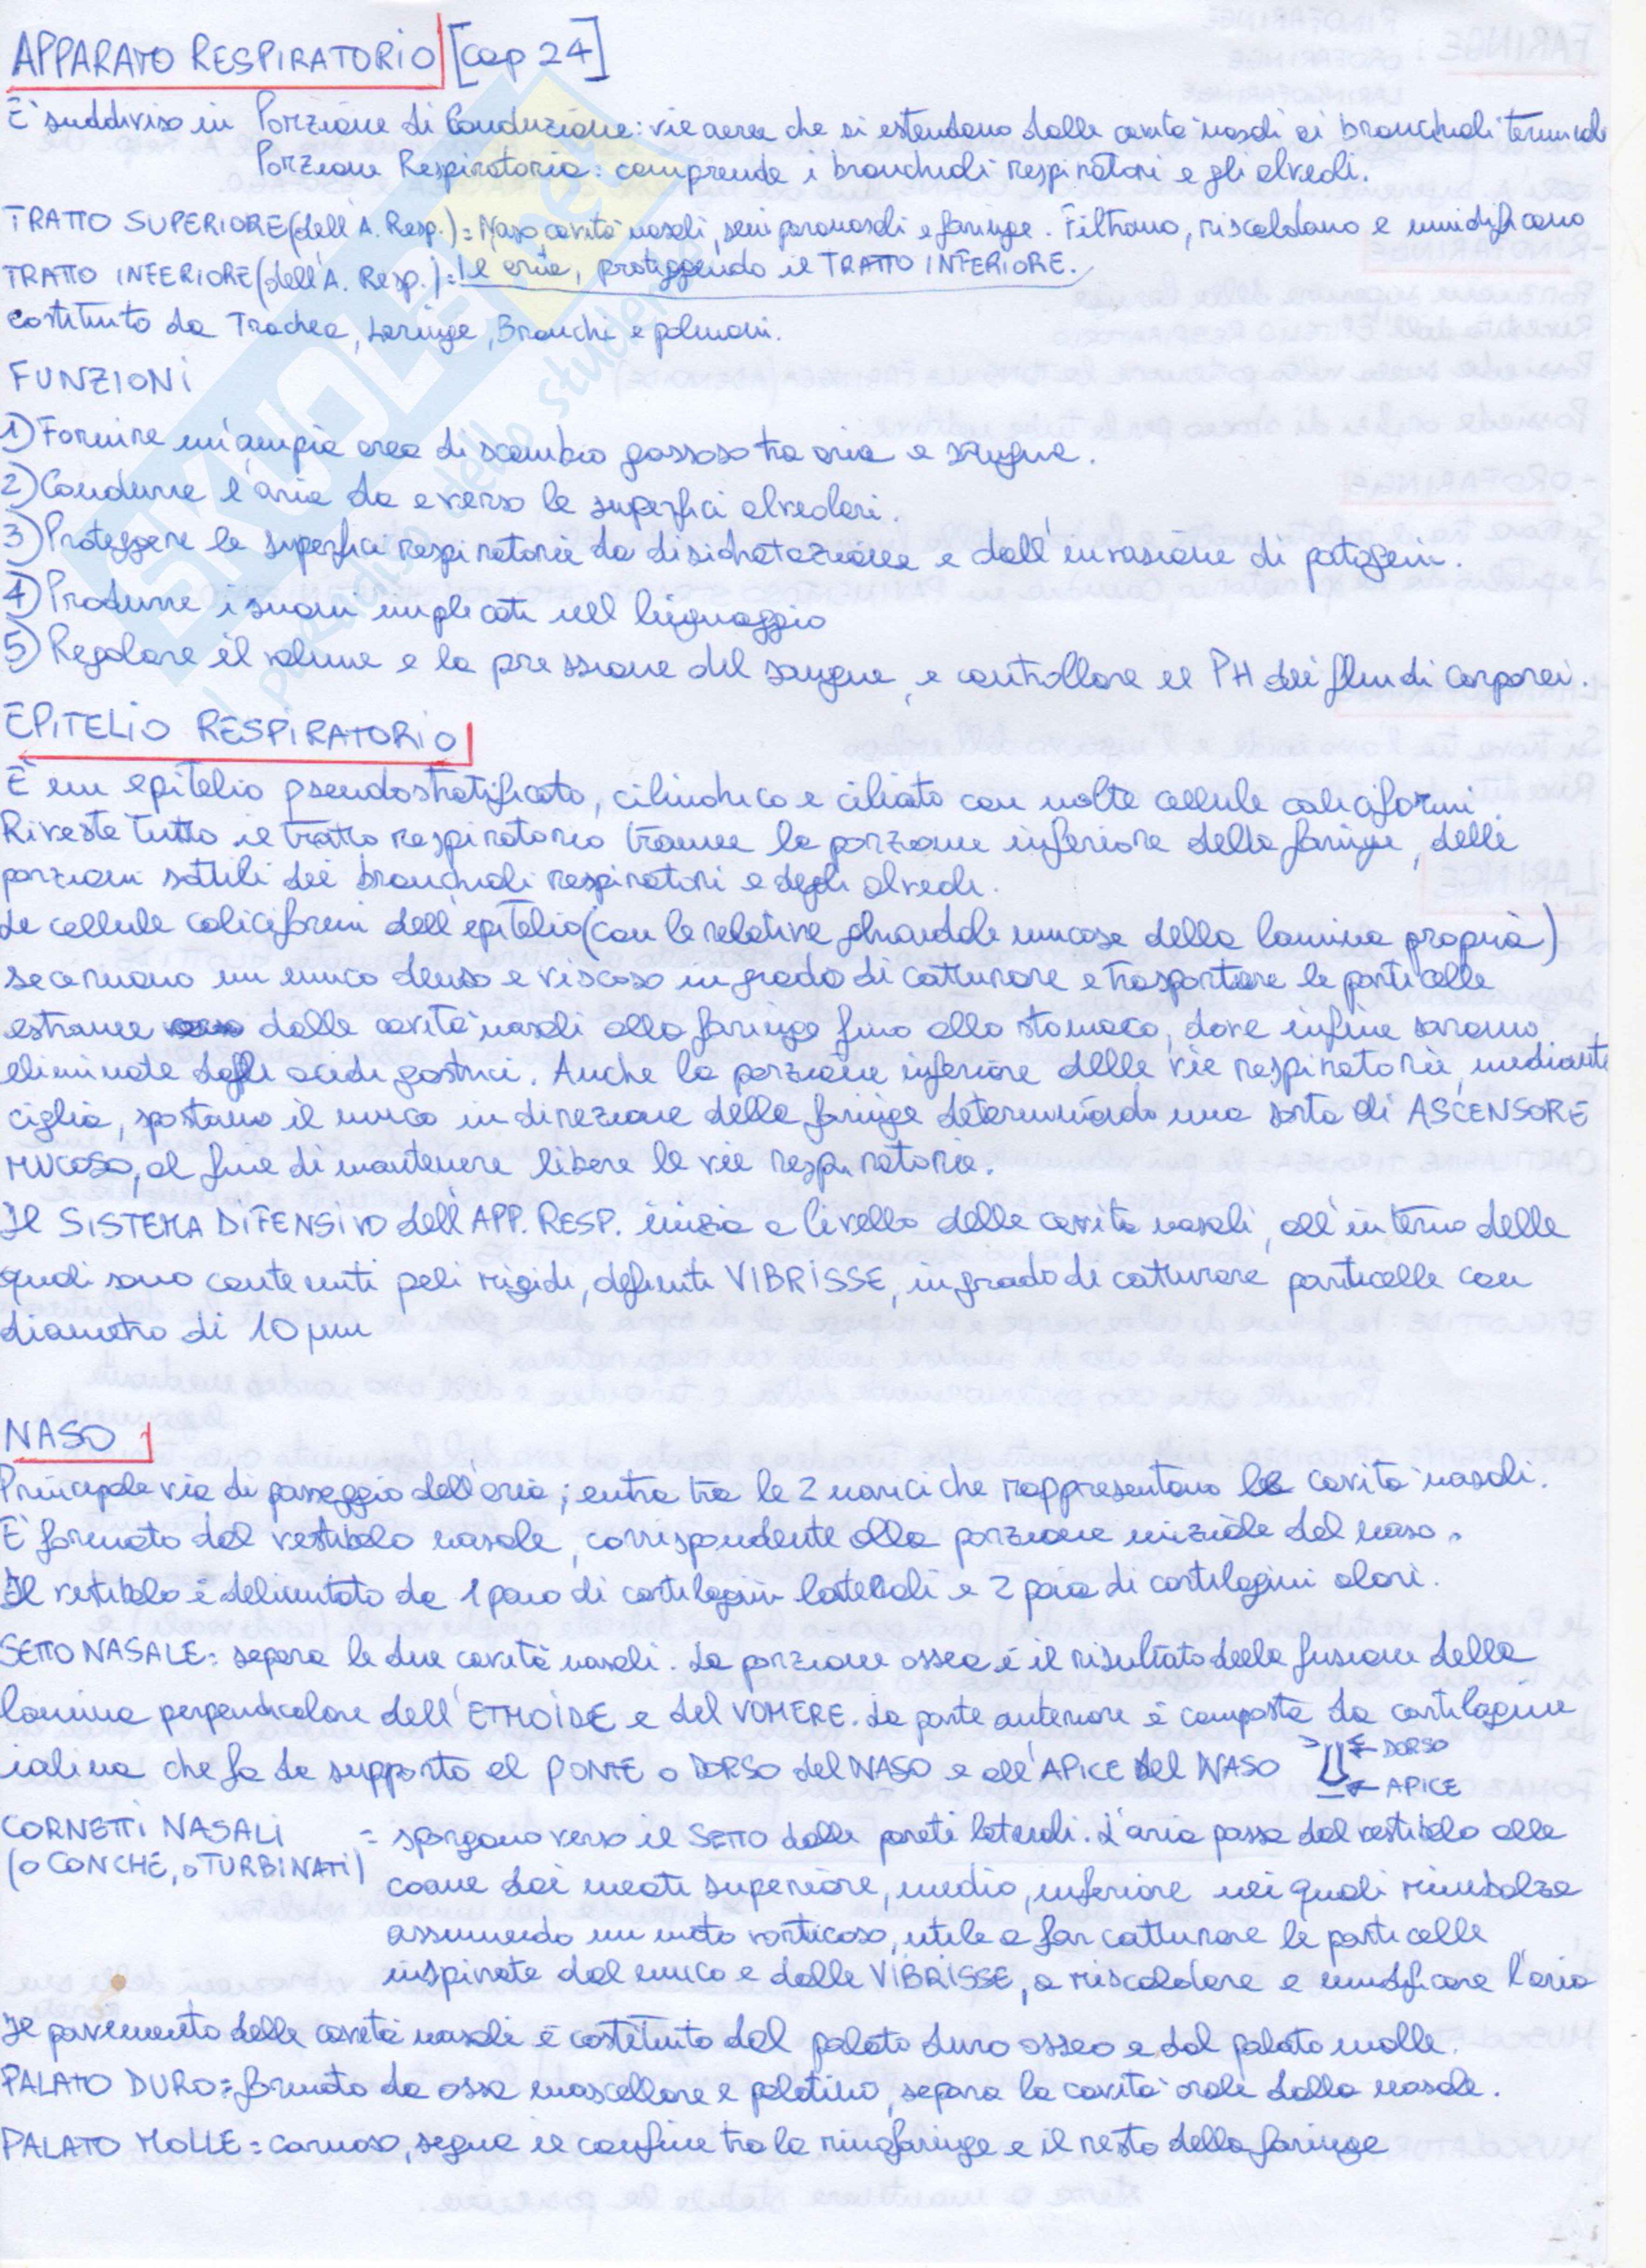 APPARATO RESPIRATORIO [cap 24]
È suddiviso in Porzione di Conduzione: vie aeree che si estendono dalle cavità nasali ai bronchioli terminali
Porzione Respiratoria: comprende i bronchioli respiratori e gli alveoli.
TRATTO SUPERIORE (dell'A. Resp.) = Naso, cavità nasali, seni paranasali e faringe. Filtrano, riscaldano e umidificano
l'aria, proteggendo il TRATTO INFERIORE.
TRATTO INFERIORE (dell'A. Resp.) =
costituito da Trachea, Laringe, Bronchi e polmoni.
FUNZIONI
1) Fornire un'ampia area di scambio gassoso tra aria e sangue.
2) Condurre l'aria da e verso le superfici alveolari.
3) Proteggere le superfici respiratorie da disidratazione e dall'invasione di patogeni.
4) Produrre i suoni implicati nel linguaggio
5) Regolare il volume e la pressione del sangue, e controllare il PH dei fluidi corporei.
EPITELIO RESPIRATORIO
È un epitelio pseudostratificato, cilindrico e ciliato con molte cellule caliciformi.
Riveste tutto il tratto respiratorio tranne la porzione inferiore della faringe, delle
porzioni sottili dei bronchioli respiratori e degli alveoli.
Le cellule caliciformi dell'epitelio (con le relative ghiandole mucose della lamina propria)
secernono un muco denso e viscoso in grado di catturare e trasportare le particelle
estranee dalle cavità nasali alla faringe fino allo stomaco, dove infine saranno
eliminate dagli acidi gastrici. Anche la porzione inferiore delle vie respiratorie, mediante
ciglia, spostano il muco in direzione della faringe determinando una sorta di ASCENSORE
MUCOSO, al fine di mantenere libere le vie respiratorie.
Il SISTEMA DIFENSIVO dell'APP. RESP. inizia a livello delle cavità nasali, all'interno delle
quali sono contenuti peli rigidi, definiti VIBRISSE, in grado di catturare particelle con
diametro di 10 µm
NASO
Principale via di passaggio dell'aria; entra tra le 2 narici che rappresentano le cavità nasali.
È formato dal vestibolo nasale, corrispondente alla porzione iniziale del naso.
Il vestibolo è delimitato da 1 paio di cartilagini laterali e 2 paia di cartilagini alari.
SETTO NASALE = separa le due cavità nasali. La porzione ossea è il risultato della fusione della
lamina perpendicolare dell'ETMOIDE e del VOMERE. La parte anteriore è composta da cartilagine
ialina che fa da supporto al PONTE o DORSO del NASO e all'APICE del NASO
DORSO
APICE
CORNETTI NASALI = sporgono verso il SETTO dalle pareti laterali. L'aria passa dal vestibolo alle
(o CONCHE, o TURBINATI) coane dai meati superiore, medio, inferiore nei quali rimbalza
assumendo un moto vorticoso, utile a far catturare le particelle
inspirate dal muco e dalle VIBRISSE, a riscaldare e umidificare l'aria
Il pavimento delle cavità nasali è costituito dal palato duro osseo e dal palato molle.
PALATO DURO = formato da ossa mascellare e palatino, separa la cavità orale dalla nasale.
PALATO MOLLE = carnoso, segna il confine tra la rinofaringe e il resto della faringe